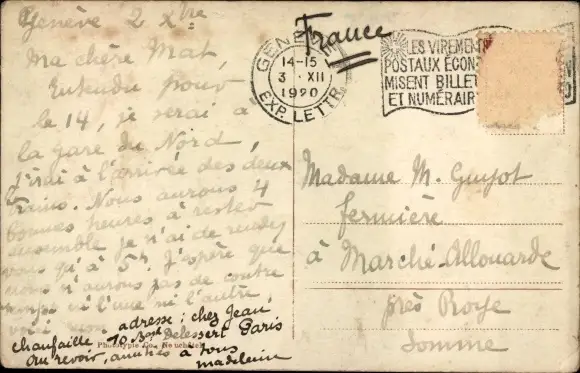 Genève 2 Xbre
Ma chère Mat,
Entendu pour
le 14, je serai à
la gare du Nord,
j'irai à l'arrivée des deux
trains. Nous aurons 4
bonnes heures à rester
ensemble je n'ai de rendez
vous qu'à 5h. J'espère que
nous n'aurons pas de contre
temps ni l'une ni l'autre,
adresse : chez Jean
chaufaille 10 Bd Delessert Paris
Au revoir, amitiés à tous
madeleine
Phototypie Co., Neuchâtel
France
GENÈVE
14-15
3 XII
1920
EXP. LETTR.
LES VIREMENT
POSTAUX ÉCON
MISENT BILLET
ET NUMÉRAIR
Madame M. Guyot
fermière
à Marché-Allouarde
près Roye
Somme